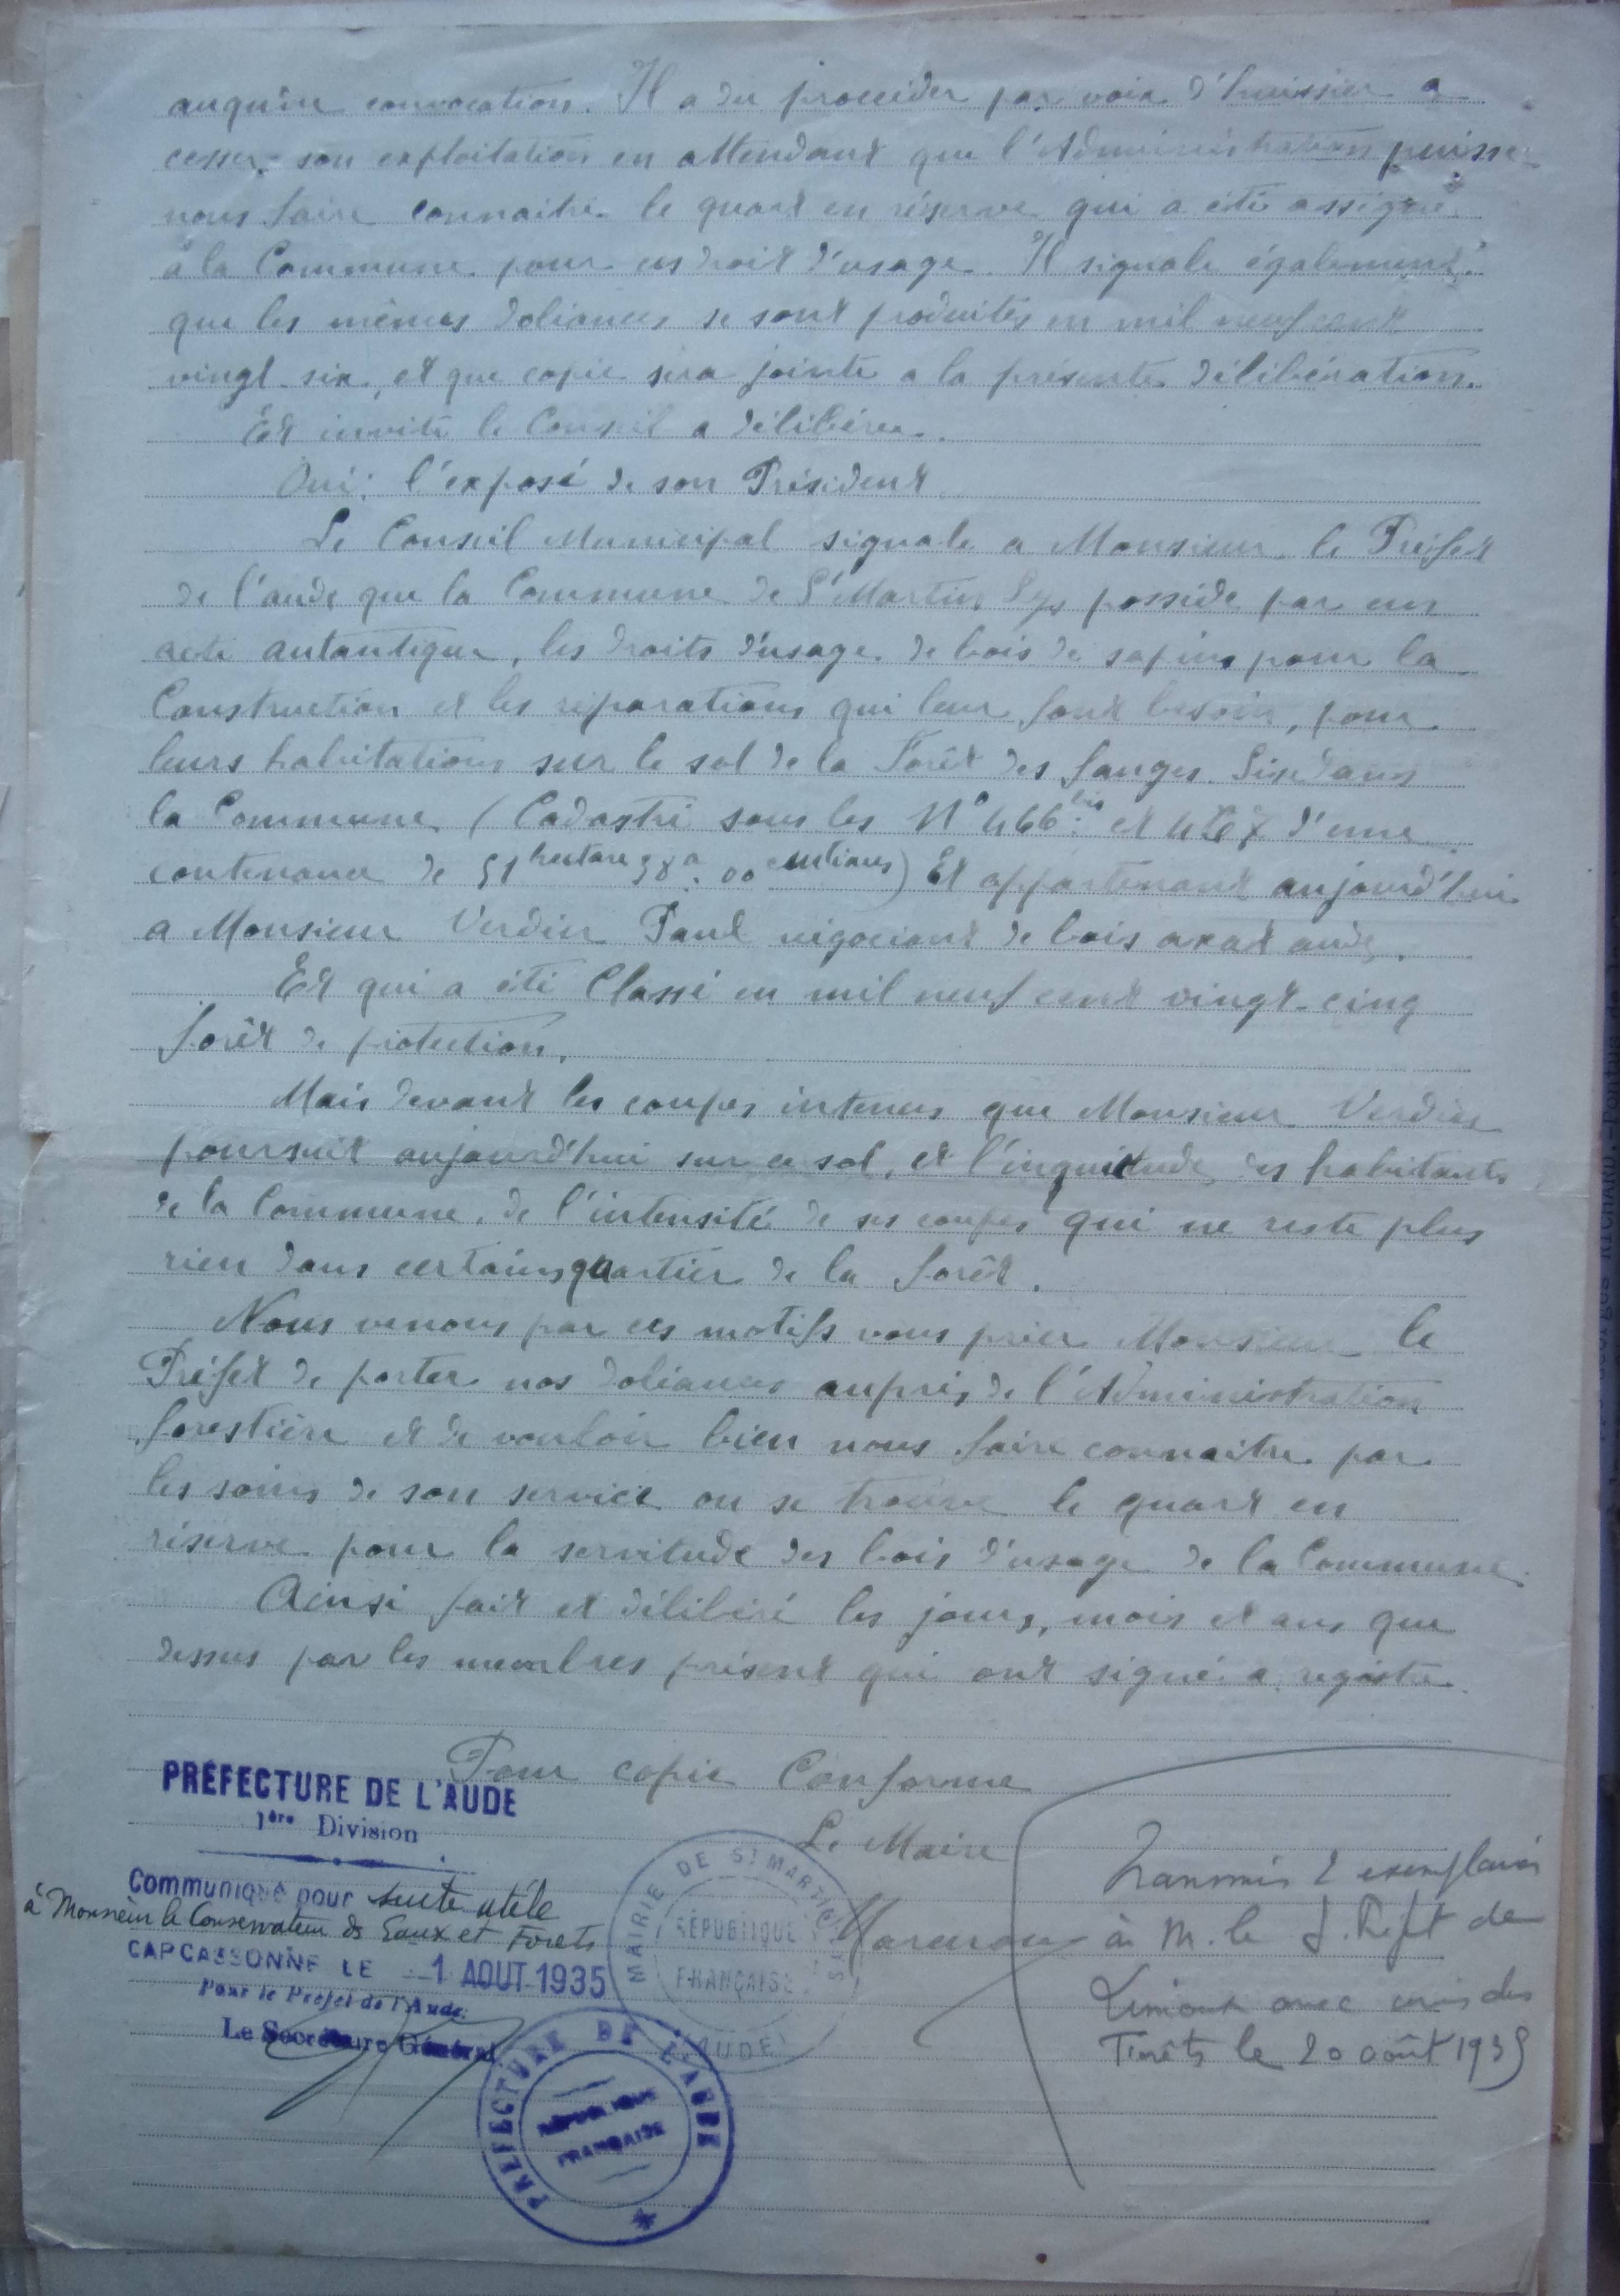 auqu'une convocation. Il a du proceider par voix d'huissier a
cesser son exploitation en attendant que l'Administration puisse
nous faire connaitre le quart en réserve qui a été assigné
à la Commune pour ces droit d'usage. Il signale également
que les mêmes doliances se sont produites en mil neuf cent
vingt six, et que copie sera jointe a la présente délibération.
Et invite le Conseil a délibérer.
Oui: l'exposé de son Président
Le Conseil Municipal signale a Monsieur le Préfet
de l'aude que la Commune de St Martin Lys possède par un
acte autantique, les droits d'usage de bois de sapins pour la
Construction et les réparations qui leur font besoin, pour
leurs habitations sur le sol de la Forêt des fanges. Sise dans
la Commune (Cadastré sous les N° 466 bis et 467 d'une
contenance de 51 hectare 38 a. 00 centiares) Et appartenant aujourd'hui
a Monsieur Verdier Paul négociant de bois axat aude.
Et qui a été Classé en mil neuf cent vingt-cinq
forêt de protection.
Mais devant les coupes intenses que Monsieur Verdier
poursuit aujourd'hui sur ce sol, et l'inquiétude des habitants
de la Commune, de l'intensité de ses coupes qui ne reste plus
rien dans certains quartier de la forêt.
Nous venons par ces motifs vous prier Monsieur le
Préfet de porter nos doliances auprès de l'Administration
forestière et de vouloir bien nous faire connaitre par
les soins de son service ou se trouve le quart en
réserve pour la servitude des bois d'usage de la Commune.
Ainsi fait et délibéré les jours, mois et ans que
dessus par les membres présent qui ont signé a registre.
Pour copie Conforme
Le Maire
PRÉFECTURE DE L'AUDE
1ère Division
Communiqué pour suite utile
à Monsieur le Conservateur des Eaux et Forets
CARCASSONNE LE 1 AOUT 1935
Pour le Préfet de l'Aude:
Le Secrétaire Général
MAIRIE DE ST MARTIN
RÉPUBLIQUE
FRANÇAISE
(AUDE)
PREFECTURE DE L'AUDE
RÉPUBLIQUE
FRANÇAISE
Transmis 2 exemplaires
à M. le S. Préfet de
Limoux avec avis des
Forêts le 20 août 1935